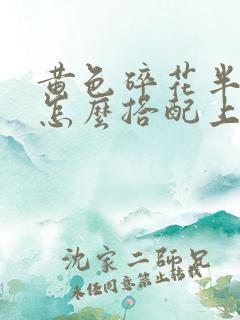 黄色碎花半
怎麼搭配上
沈家二師兄
未经同意禁止转载